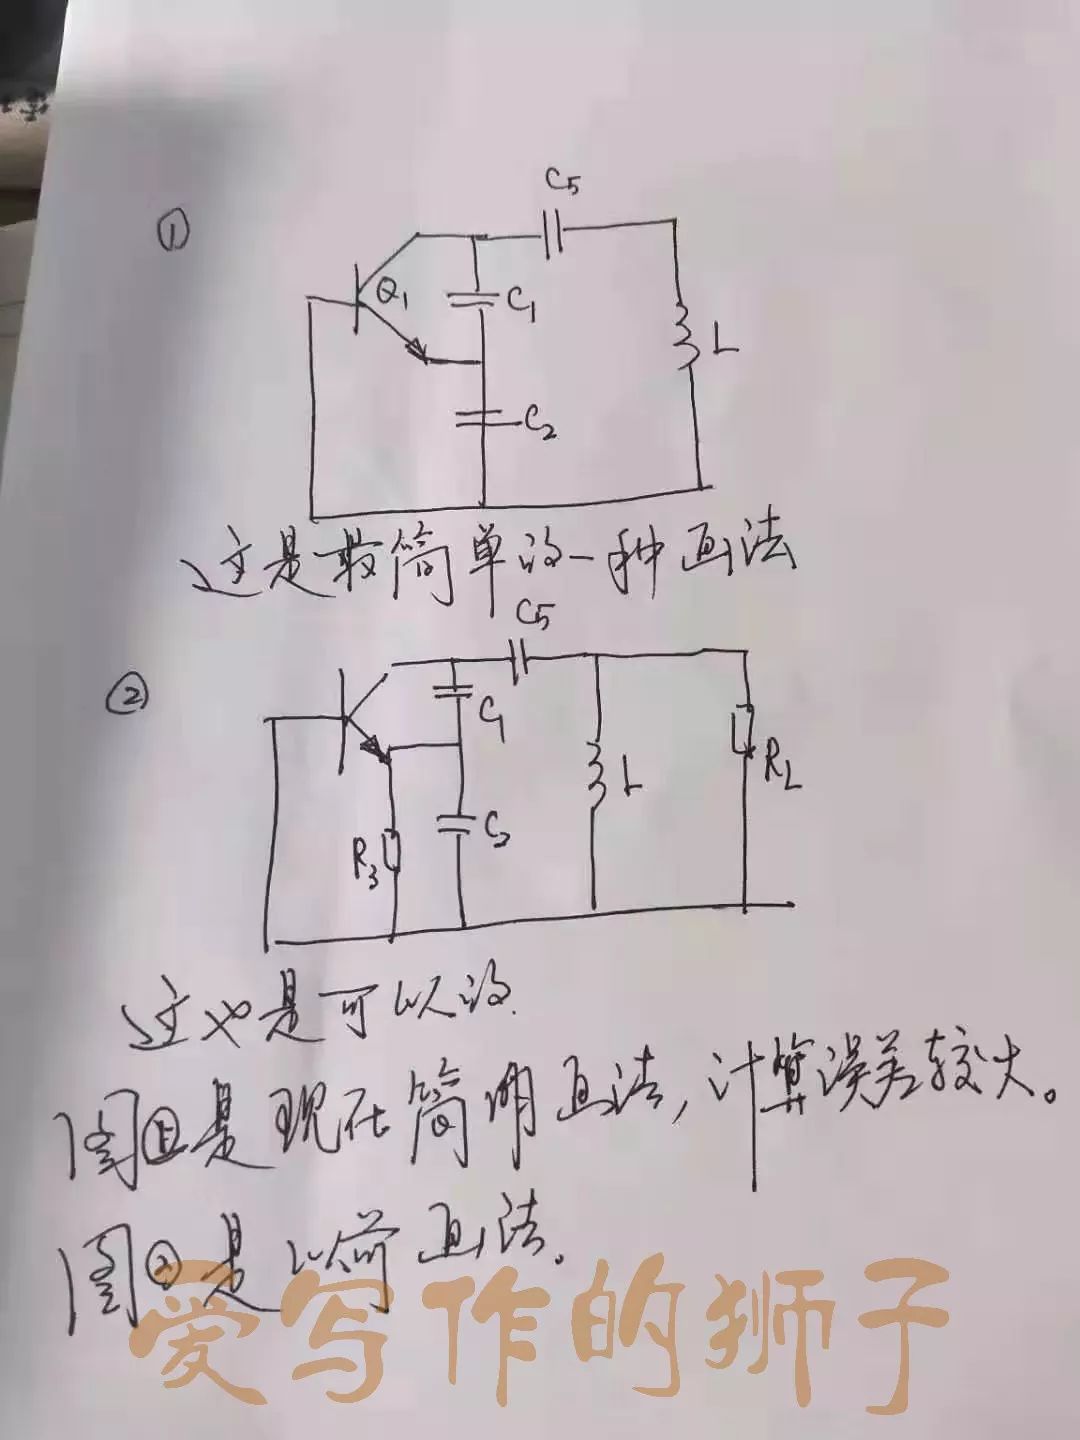 ①
C5
Q1
C1
L
C2
这是最简单的一种画法
C5
②
C1
L
RL
R3
C2
这也是可以的.
图①是现在简明画法,计算误差较大。
图②是以前画法。
爱写作的狮子